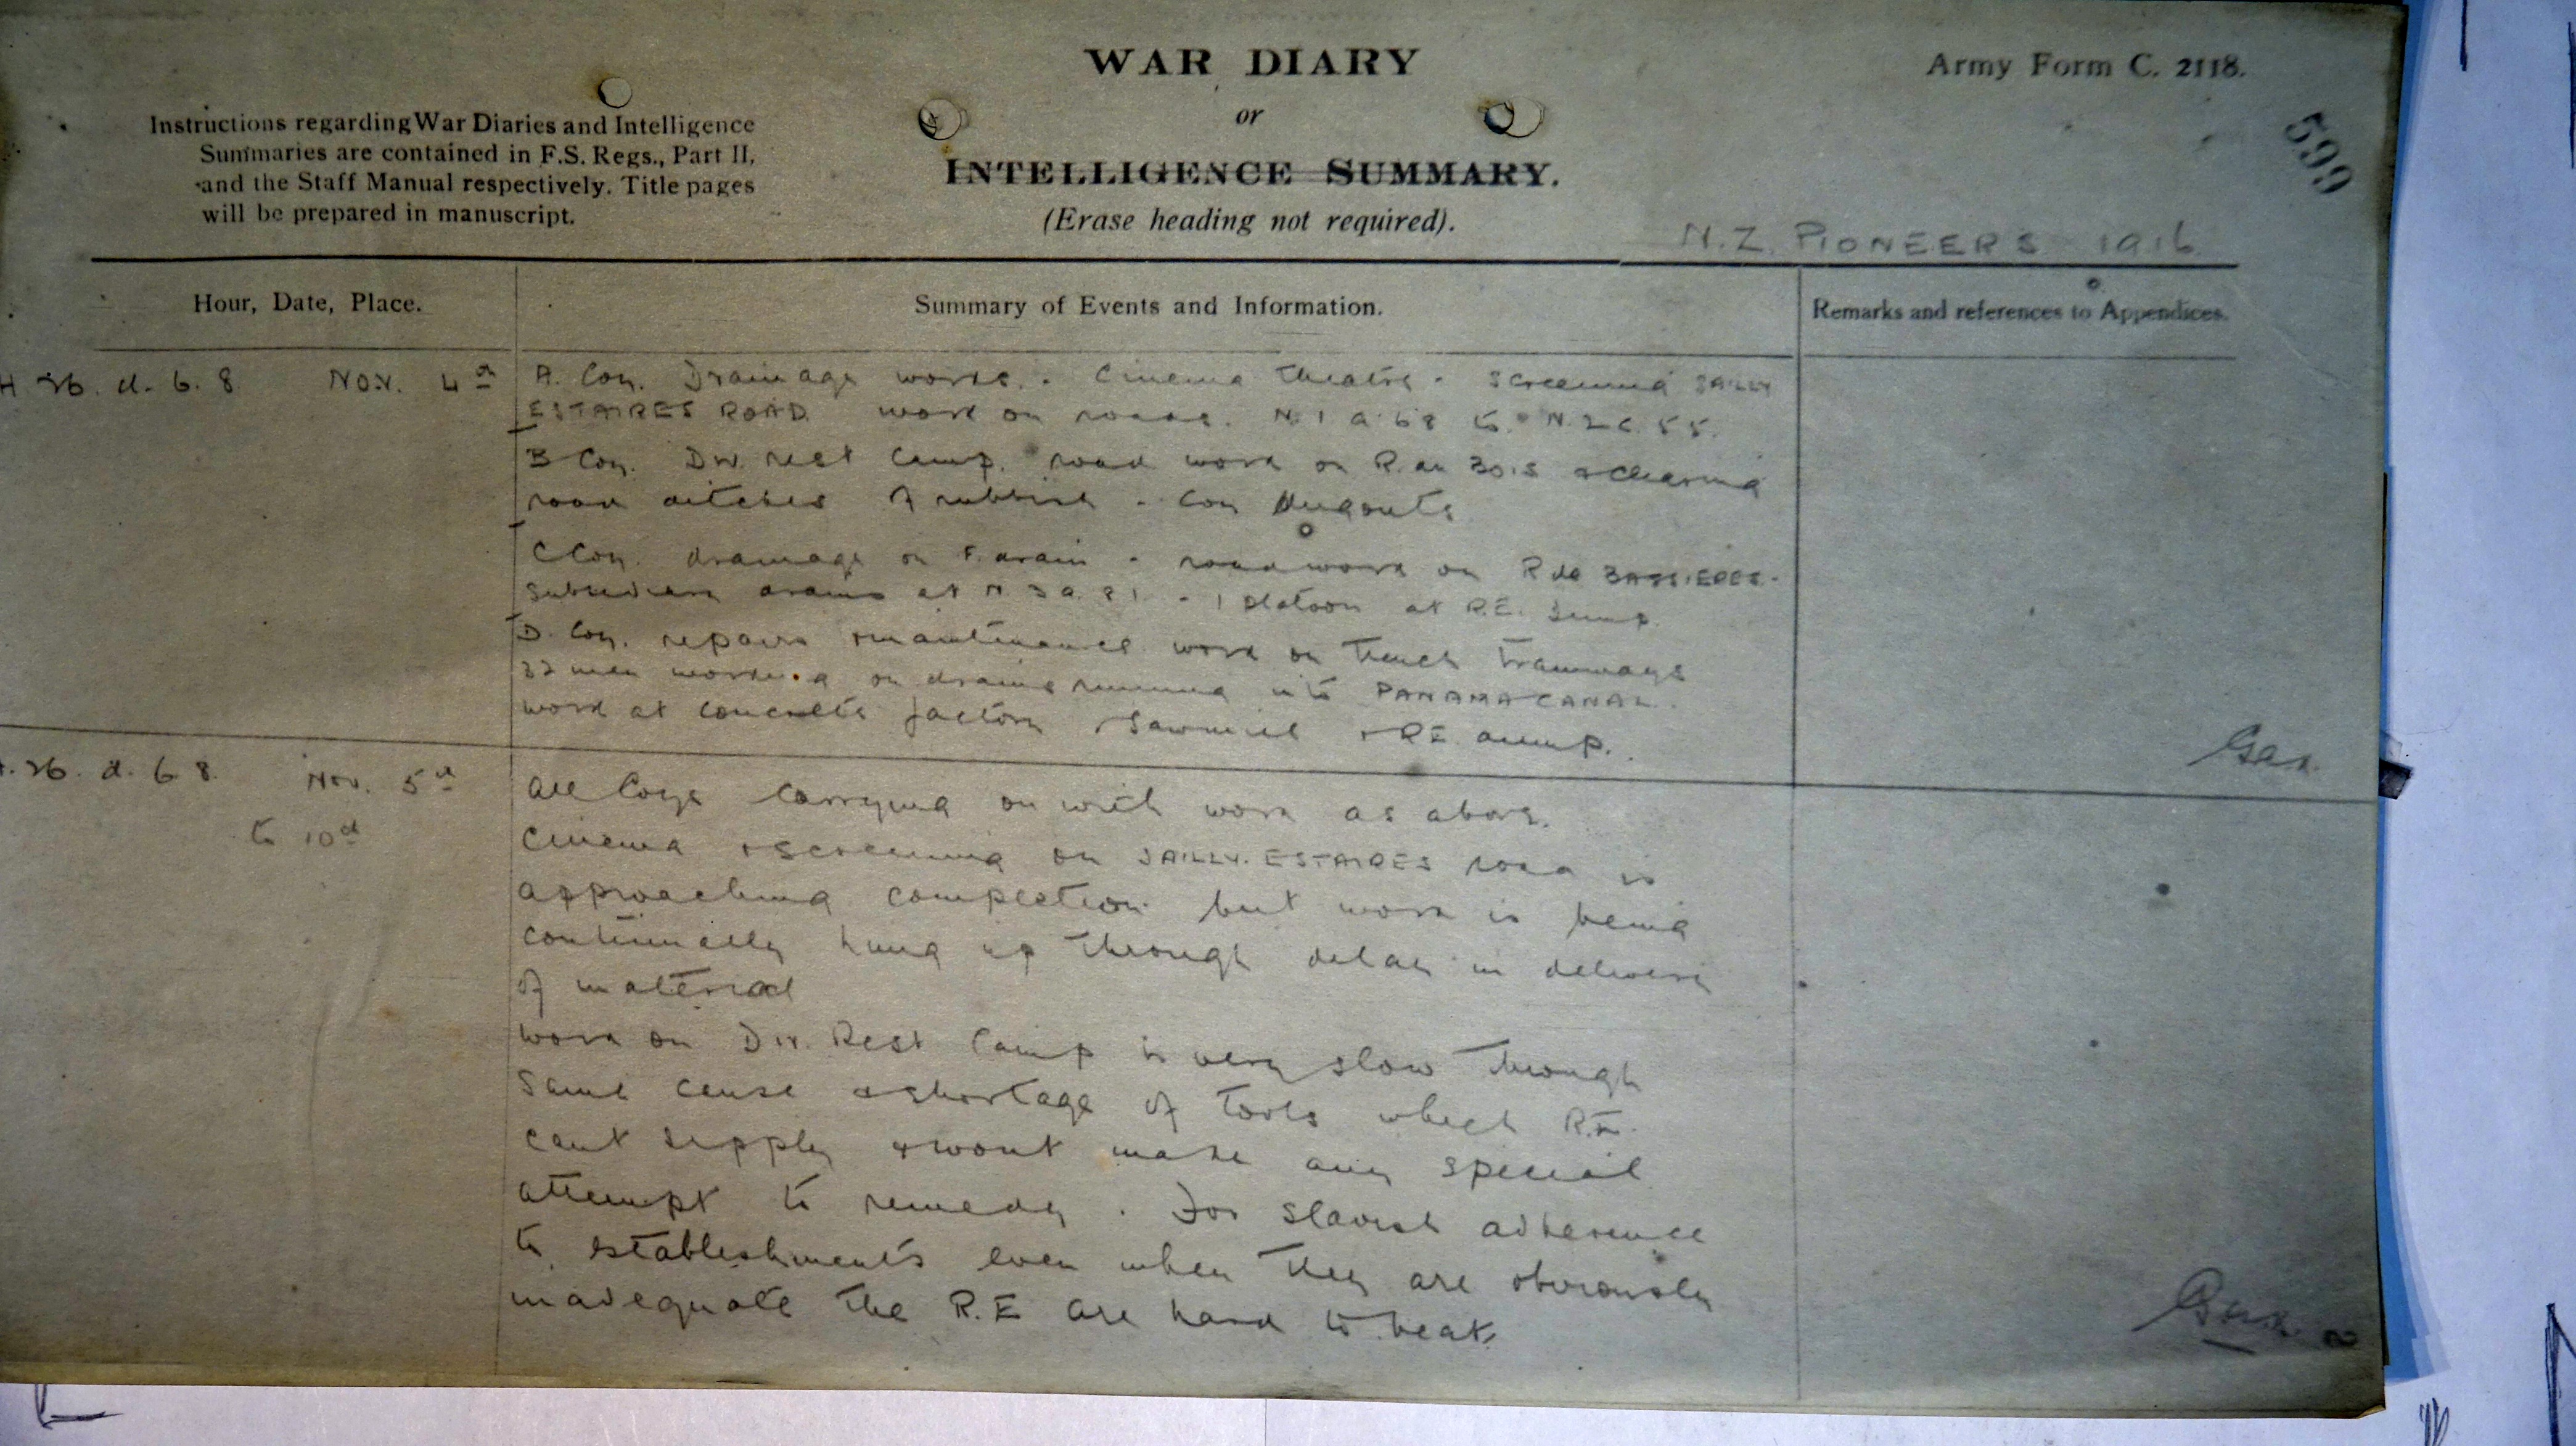 WAR DIARY
or
INTELLIGENCE SUMMARY.
(Erase heading not required).
Army Form C. 2118.
599
Instructions regarding War Diaries and Intelligence
Summaries are contained in F.S. Regs., Part II,
and the Staff Manual respectively. Title pages
will be prepared in manuscript.
N.Z. PIONEERS 1916
Hour, Date, Place.
Summary of Events and Information.
Remarks and references to Appendices.
H 26. d. 6. 8 Nov. 4th
A. Coy. Drainage works. - Cinema Theatre - Screening SAILLY
ESTAIRES ROAD work on roads. N.1 a 68 to N.2 c. 55.
B Coy. Div. rest Camp. road work on R. du BOIS & clearing
road ditches of rubbish - Coy dugouts
C Coy. drainage on F. drain - roadwork on R de
Subsidiary drains at N. 3 a. 81 - 1 platoon at R.E. dump.
D. Coy. repairs & maintenance work on Trench Tramways
32 men working on drains running into PANAMA CANAL.
work at concrete factory Sawmill & RE dump.
H. 26. d. 6 8. Nov. 5th
to 10th
All Coys carrying on with work as above.
Cinema & screening on SAILLY. ESTAIRES road is
approaching completion but work is being
continually hung up through delay in delivery
of material
work on Div. Rest Camp is very slow through
same cause & shortage of tools which R.E.
cant supply & wont make any special
attempt to remedy. For slavish adherence
to establishments even when they are obviously
inadequate the R.E are hard to beat.